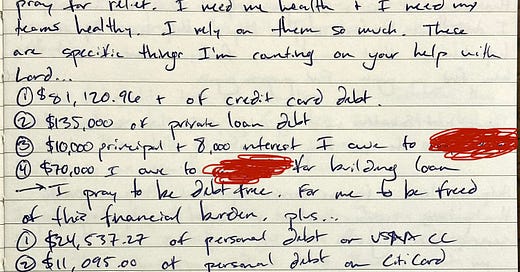 pray for relief. I need me health + I need my
teams healthy. I rely on them so much. These
are specific things I'm counting on your help with
Lord...
① $81,120.96 + of credit card debt.
② $135,000 of private loan debt
③ $10,000 principal + 8,000 interest I owe to
④ $70,000 I owe to for building loan
→ I pray to be debt free. For me to be freed
of this financial burden, plus...
① $24,537.27 of personal debt on USAA CC
② $11,095.00 of personal debt on Citi Card